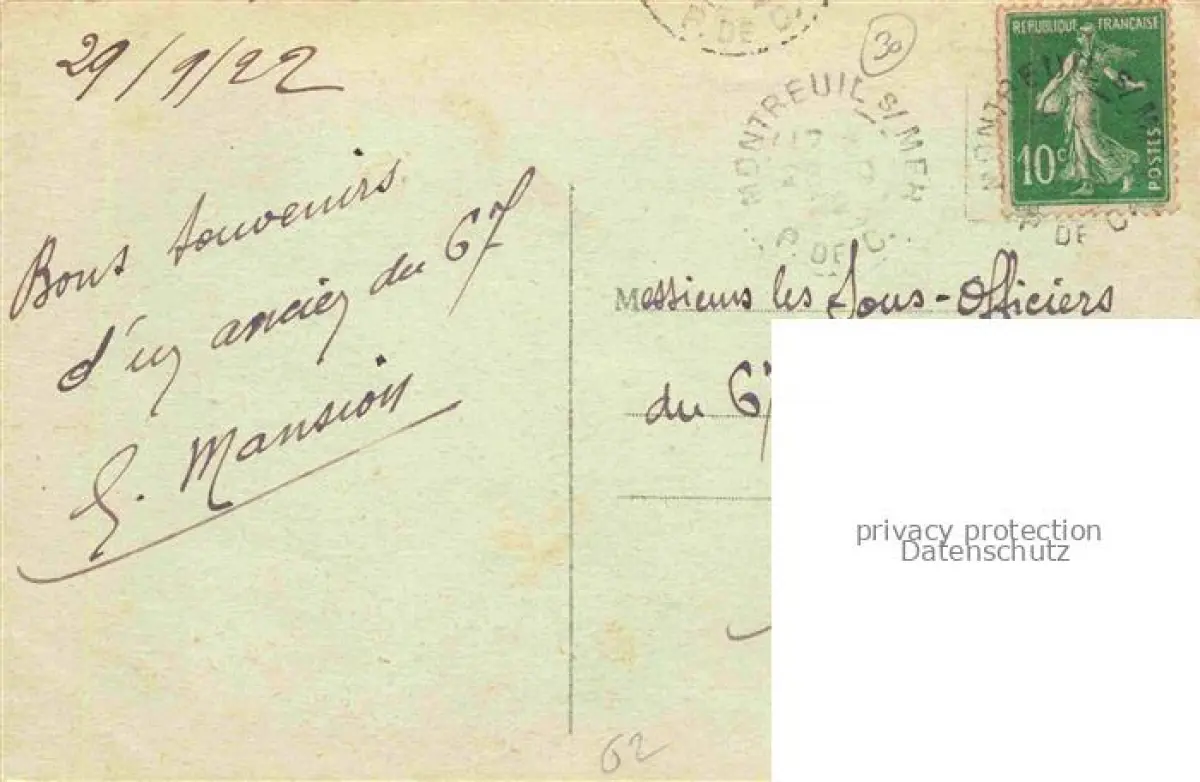 29/9/22
Bons souvenirs
d'un ancien du 67
E. Mansion
30
P. DE C.
MONTREUIL S/ MER
P. DE C.
REPUBLIQUE FRANÇAISE
10c
POSTES
MONTREUIL S M
DE C.
Messieurs les Sous-Officiers
du 67
privacy protection
Datenschutz
62